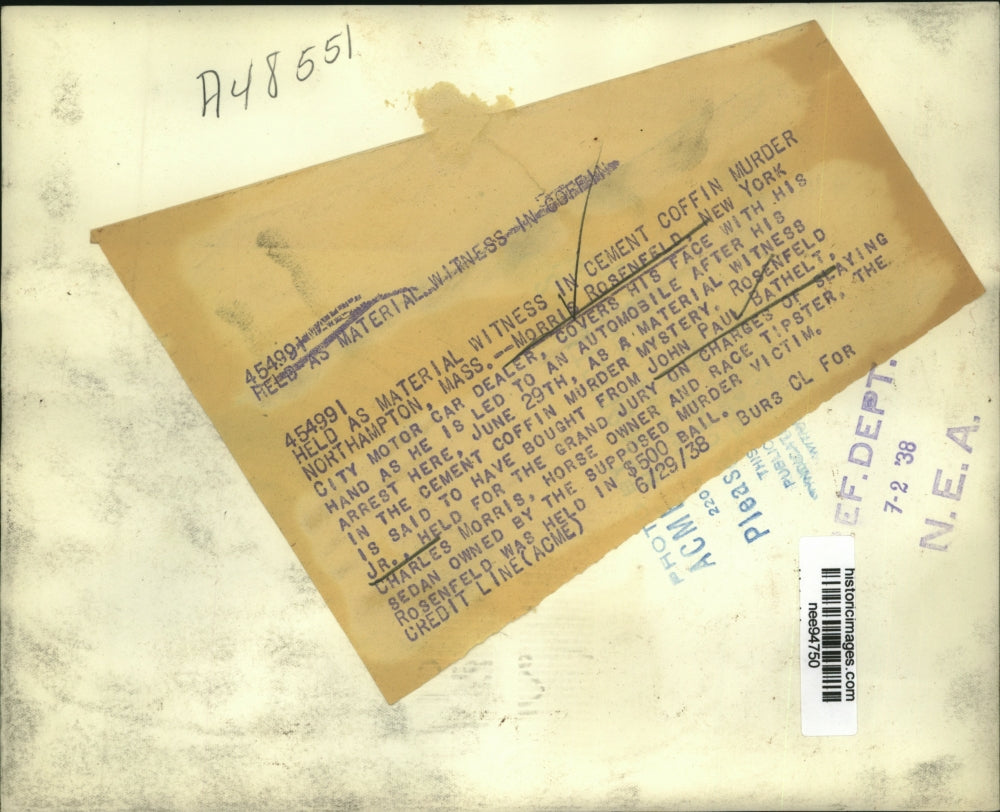 A48551
454991
HELD AS MATERIAL WITNESS IN COFFIN
454991
HELD AS MATERIAL WITNESS IN CEMENT COFFIN MURDER
NORTHAMPTON, MASS.--MORRIS ROSENFELD, NEW YORK
CITY MOTOR CAR DEALER, COVERS HIS FACE WITH HIS
HAND AS HE IS LED TO AN AUTOMOBILE AFTER HIS
ARREST HERE, JUNE 29TH, AS A MATERIAL WITNESS
IN THE CEMENT COFFIN MURDER MYSTERY. ROSENFELD
IS SAID TO HAVE BOUGHT FROM JOHN PAUL BATHELT,
JR., HELD FOR THE GRAND JURY ON CHARGES OF SLAYING
CHARLES MORRIS, HORSE OWNER AND RACE TIPSTER, THE
SEDAN OWNED BY THE SUPPOSED MURDER VICTIM.
ROSENFELD WAS HELD IN $500 BAIL.
CREDIT LINE (ACME) 6/29/38 BURS CL FOR
PHOT
ACM
220
Pleas
THIS
PUBLIC
EF. DEPT.
7-2 '38
N. E. A.
historicimages.com
nee94750